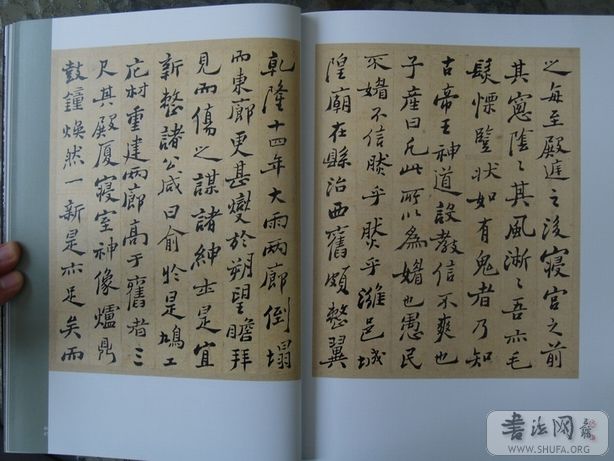 之每至殿庭之後寢宮之前
其窻陰〻其風淅〻吾亦毛
髮慄豎狀如有鬼者乃知
古帝王神道設教信不爽也
子產曰凡此所以為媚也愚民
不媚不信然乎然乎濰邑城
隍廟在縣治西舊頗整翼
乾隆十四年大雨兩廊倒塌
而東廊更甚燮於朔望瞻拜
見而傷之謀諸紳士是宜
新整諸公咸曰俞於是鳩工
庀材重建兩廊高于舊者三
尺其殿厦寢室神像爐鼎
鼓鐘煥然一新是亦足矣而
书法网
WWW.SHUFA.ORG